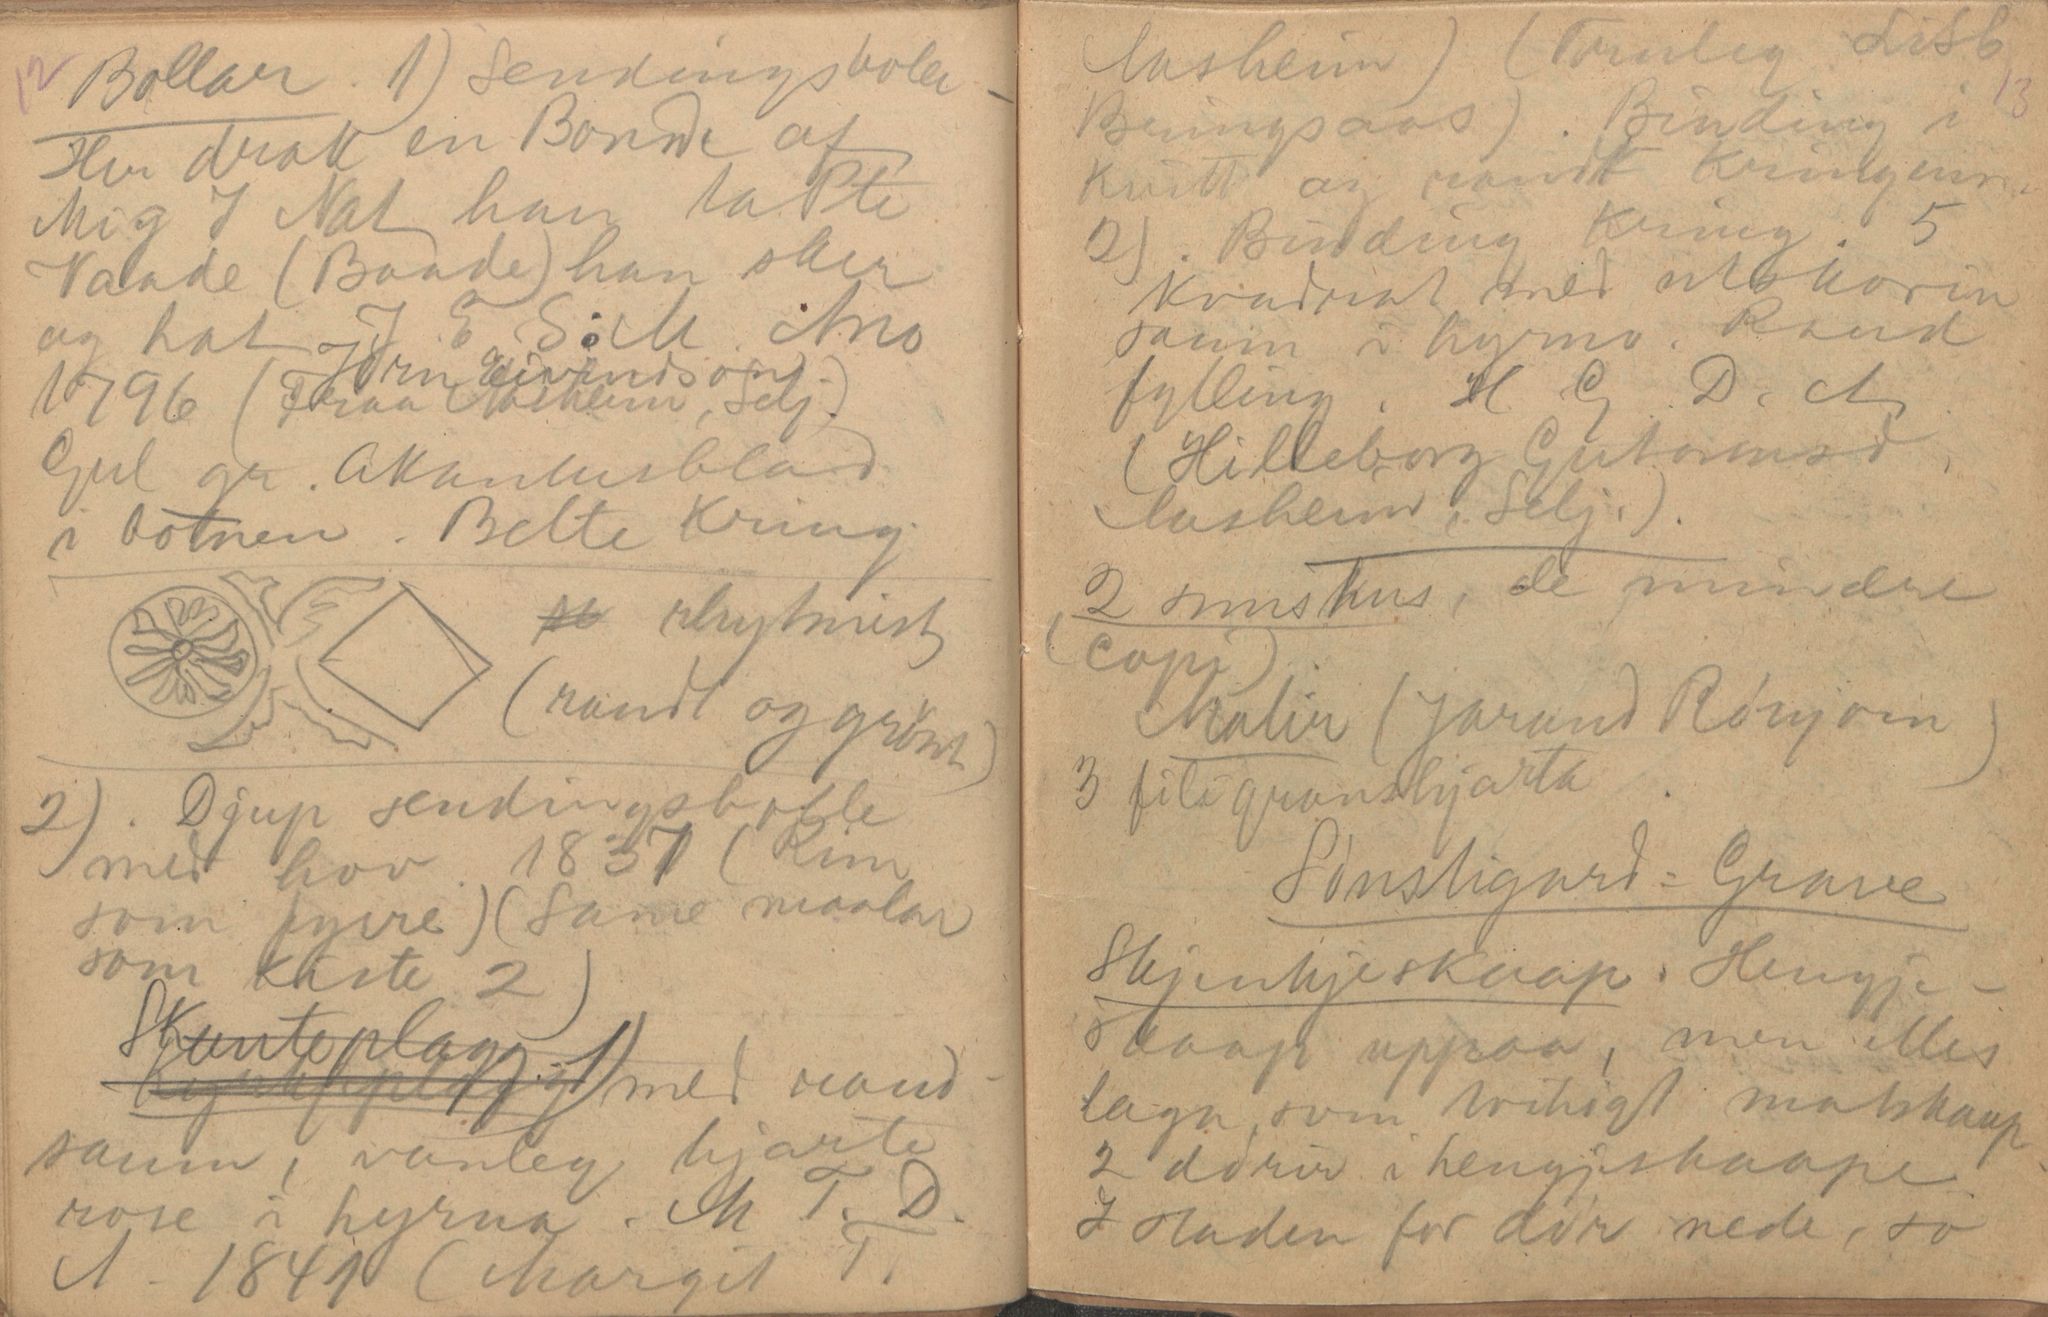 12
Bollar. 1) Sendingsbolle-
Her drak en Bonde af
Mig I Nat han tapte
Vaade (Baade) han sker
og hat J. E. S. M. Ano
Jørn Eivindson
1796 (Fraa Aasheim, Selj.)
Gul gr. Akantusblad
i botnen. Belte Kring
rhytmisk
(raudt og grønt)
2). Djup sendingsbolle
med hov. 1837 (Rim
som fyrre) (Same maalar
som kiste 2)
Skunteplagg 1) med raud-
saum, vanleg hjarte
rose i hyrna. M T. D.
A - 1841 (Margit T.
13
Aasheim) (Truleg Lisb
Bringsaas). Binding i
Kvitt og raudt Kringum.
2). Binding Kring. 5
Kvadrat med utskorin
saum i hyrno. Raud
fylling. H G D. A
(Hilleborg Gutormsd.
Aasheim, Selj.).
2 snushus, de mindre
(Copi)
Malir (Jarand Rónjom)
3 filigranshjarta.
Sønstigard - Grave
Skjenkjeskaap. Hengje-
skaap uppaa, men elles
laga som tvihøgt matskaap.
2 dørir i hengjeskaape
I staden for dør nede, so